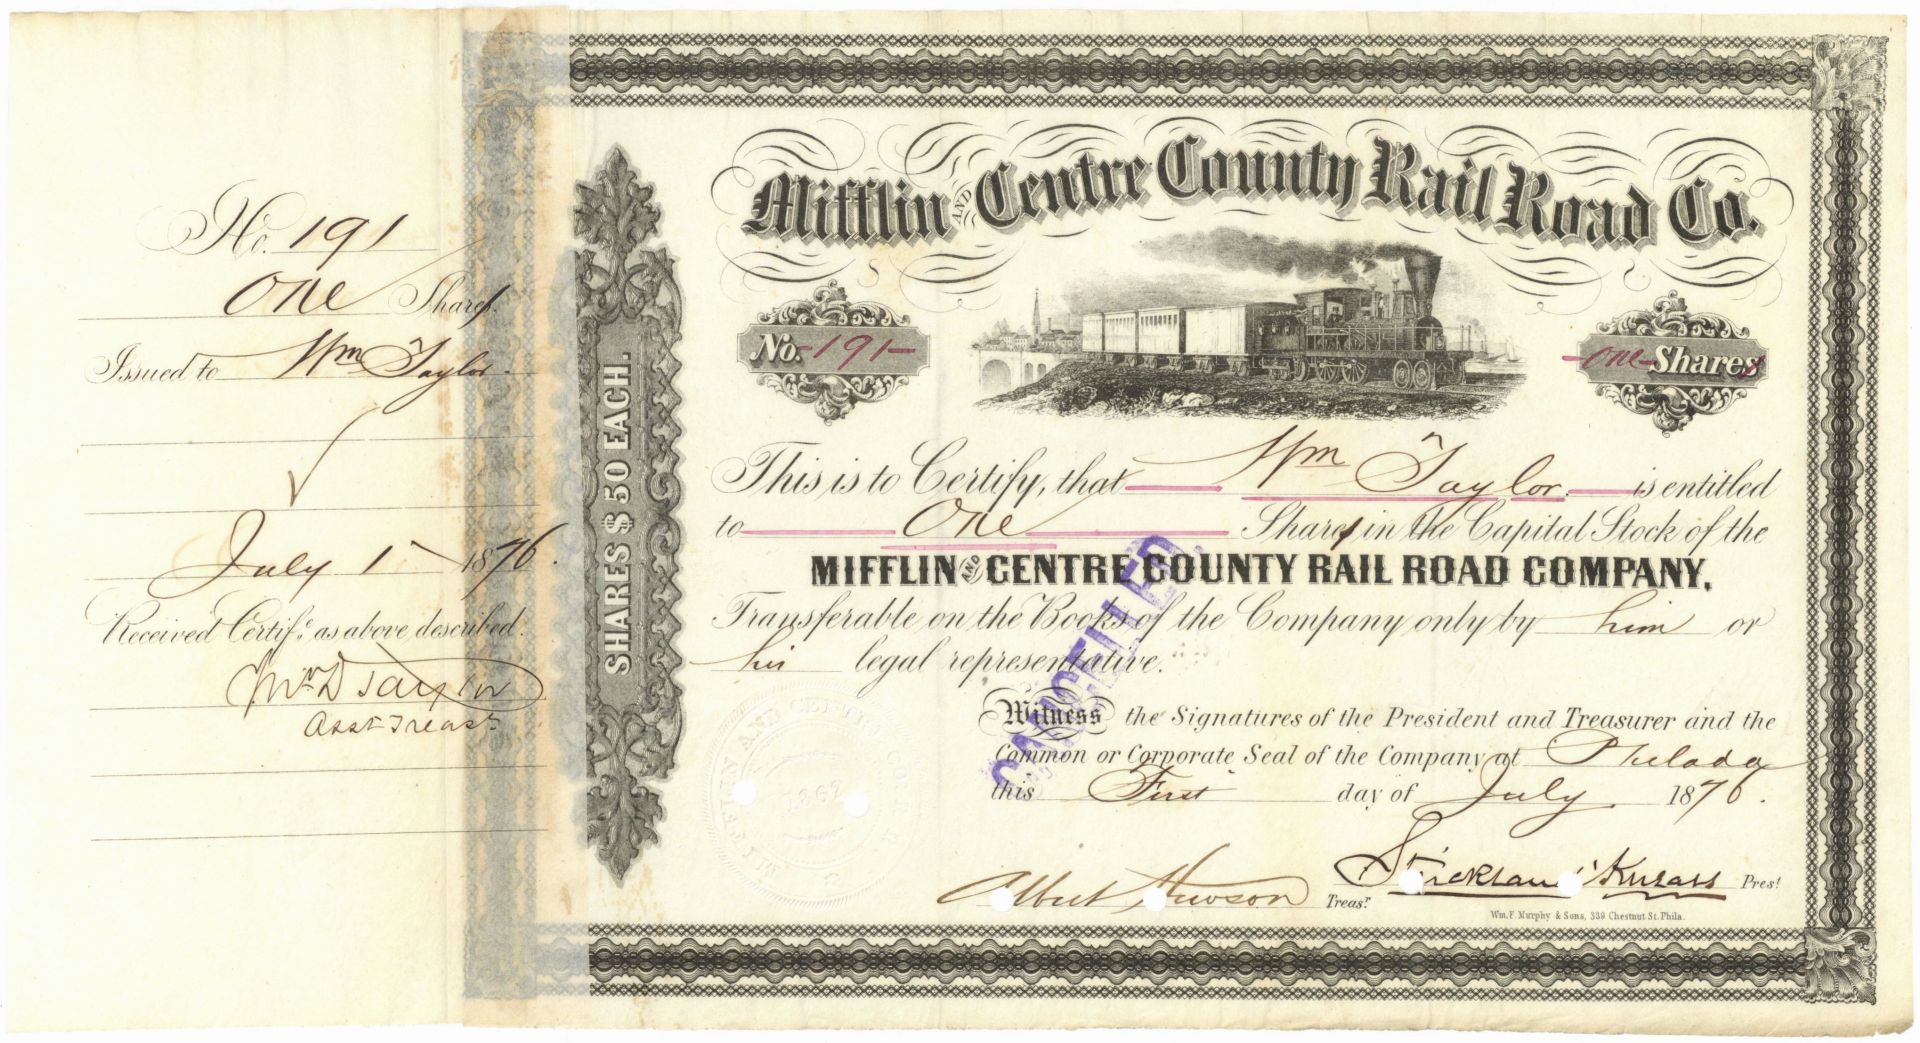 No. 191
One Share
Issued to Wm Taylor
July 1 1876.
Received Certife. as above described.
Wm D Taylor
Asst Treasr
SHARES $50 EACH.
Mifflin AND Centre County Rail Road Co.
No. 191
One Shares
This is to Certify, that Wm Taylor is entitled
to One Share in the Capital Stock of the
MIFFLIN AND CENTRE COUNTY RAIL ROAD COMPANY,
Transferable on the Books of the Company only by him or
his legal representative.
CANCELLED
Witness the Signatures of the President and Treasurer and the
Common or Corporate Seal of the Company at Philada
this First day of July 1876.
MIFFLIN AND CENTRE CO
1862
Strickland Kneass Prest.
Albert Hewson Treasr.
Wm. F. Murphy & Sons, 339 Chestnut St. Phila.